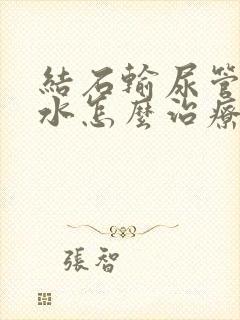 結石輸尿管
水怎麼治療
張智